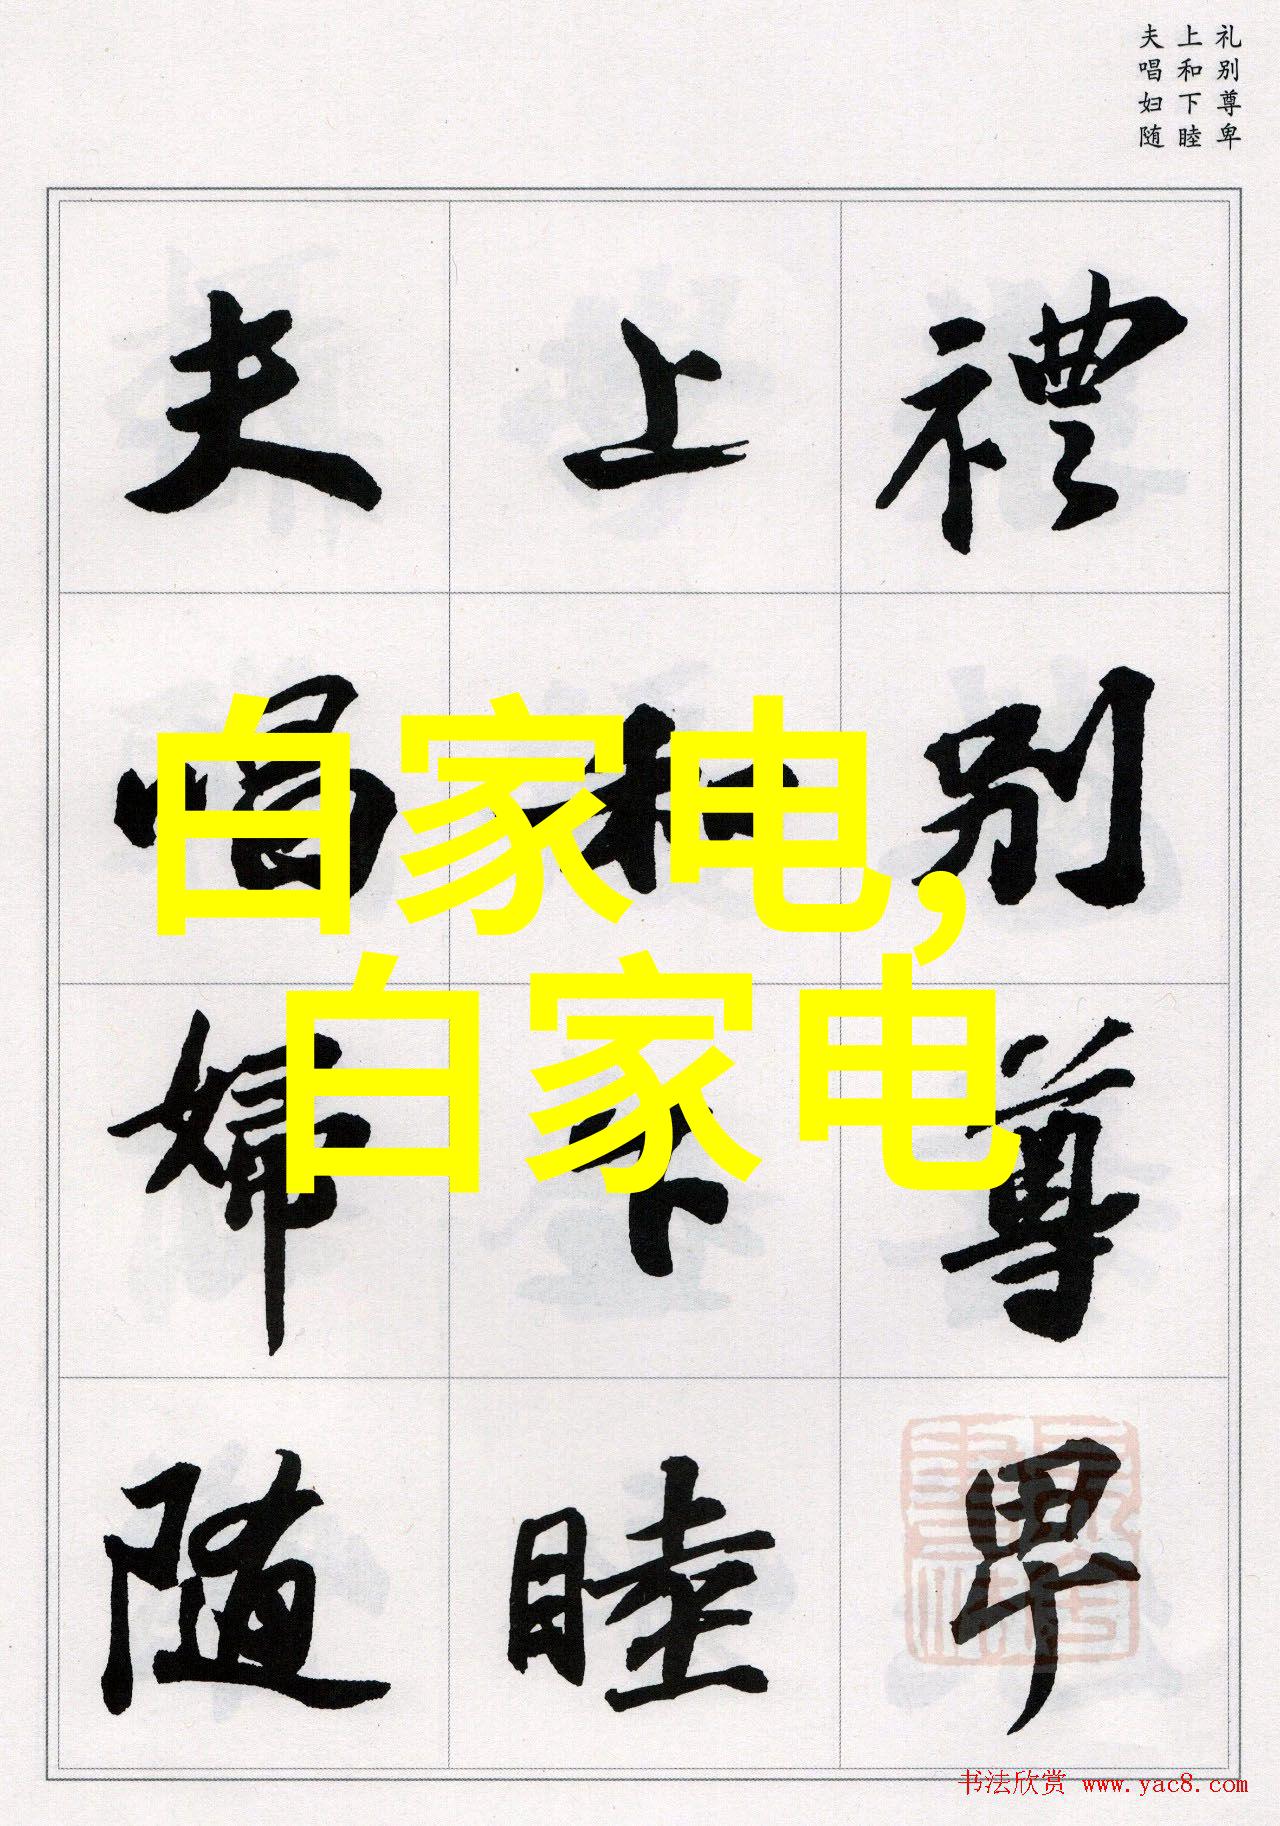 礼别尊卑
上和下睦
夫唱妇随
禮别尊卑
上和下睦
夫唱婦随
白家电,
白家电
书法欣赏 www.yac8.com